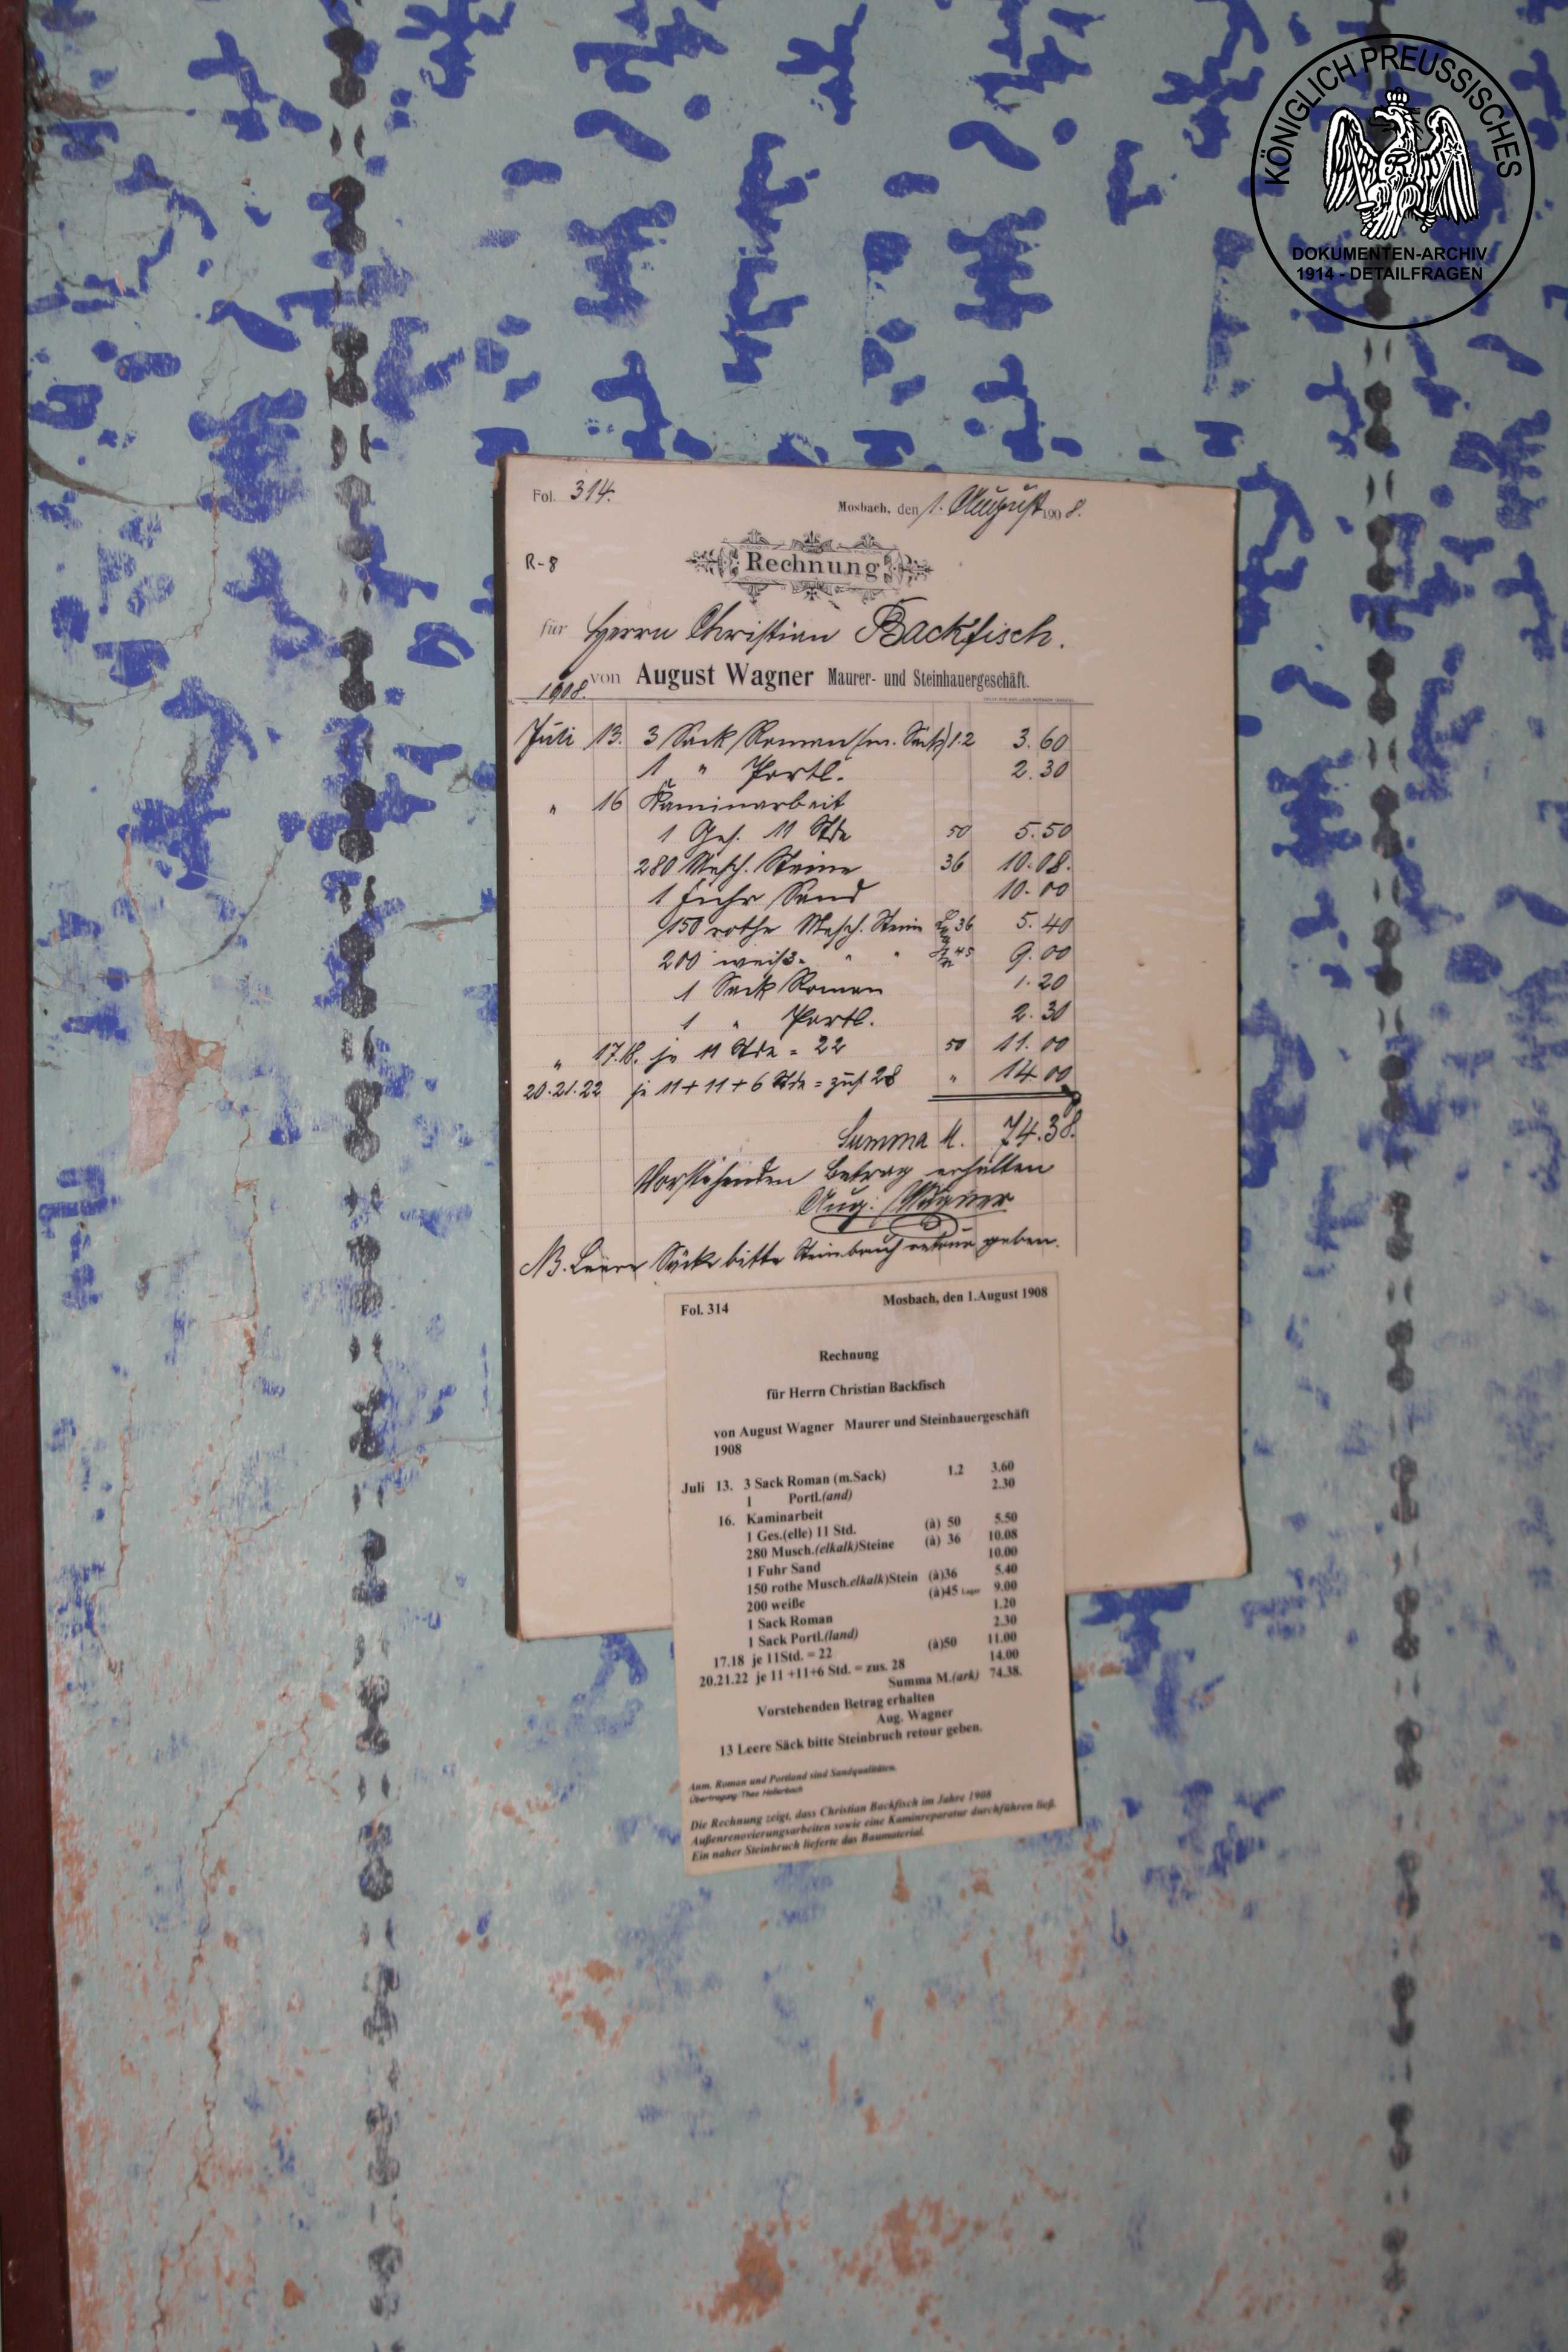 KÖNIGLICH PREUSSISCHES
DOKUMENTEN-ARCHIV
1914 - DETAILFRAGEN
Fol. 314.
Mosbach, den 1. August 1908.
R-8
Rechnung
für Herrn Christian Backfisch.
von August Wagner Maurer- und Steinhauergeschäft.
1908.
Juli 13. 3 Sack Roman (m. Sack) 1.2 3.60
1 " Portl. 2.30
" 16 Kaminarbeit
1 Ges. 11 Stde 50 5.50
280 Musch. Steine 36 10.08.
1 Fuhr Sand 10.00
150 rothe Musch. Stein 36 5.40
200 weiß. " " 45 9.00
1 Sack Roman 1.20
1 " Portl. 2.30
" 17.18. je 11 Stde = 22 50 11.00
20.21.22 je 11 + 11 + 6 Stde = zus 28 " 14.00
Summa M. 74.38.
Vorstehenden Betrag erhalten
Aug. Wagner
NB. Leere Säcke bitte Steinbruch retour geben.
Fol. 314 Mosbach, den 1.August 1908
Rechnung
für Herrn Christian Backfisch
von August Wagner Maurer und Steinhauergeschäft
1908
Juli 13. 3 Sack Roman (m.Sack) 1.2 3.60
1 Portl.(and) 2.30
16. Kaminarbeit
1 Ges.(elle) 11 Std. (à) 50 5.50
280 Musch.(elkalk)Steine (à) 36 10.08
1 Fuhr Sand 10.00
150 rothe Musch.elkalk)Stein (à)36 5.40
200 weiße (à)45 Lager 9.00
1 Sack Roman 1.20
1 Sack Portl.(land) 2.30
17.18 je 11Std. = 22 (à)50 11.00
20.21.22 je 11 +11+6 Std. = zus. 28 14.00
Summa M.(ark) 74.38.
Vorstehenden Betrag erhalten
Aug. Wagner
13 Leere Säck bitte Steinbruch retour geben.
Anm. Roman und Portland sind Sandqualitäten.
Übertragung: Theo Hollerbach
Die Rechnung zeigt, dass Christian Backfisch im Jahre 1908
Außenrenovierungsarbeiten sowie eine Kaminreparatur durchführen ließ.
Ein naher Steinbruch lieferte das Baumaterial.